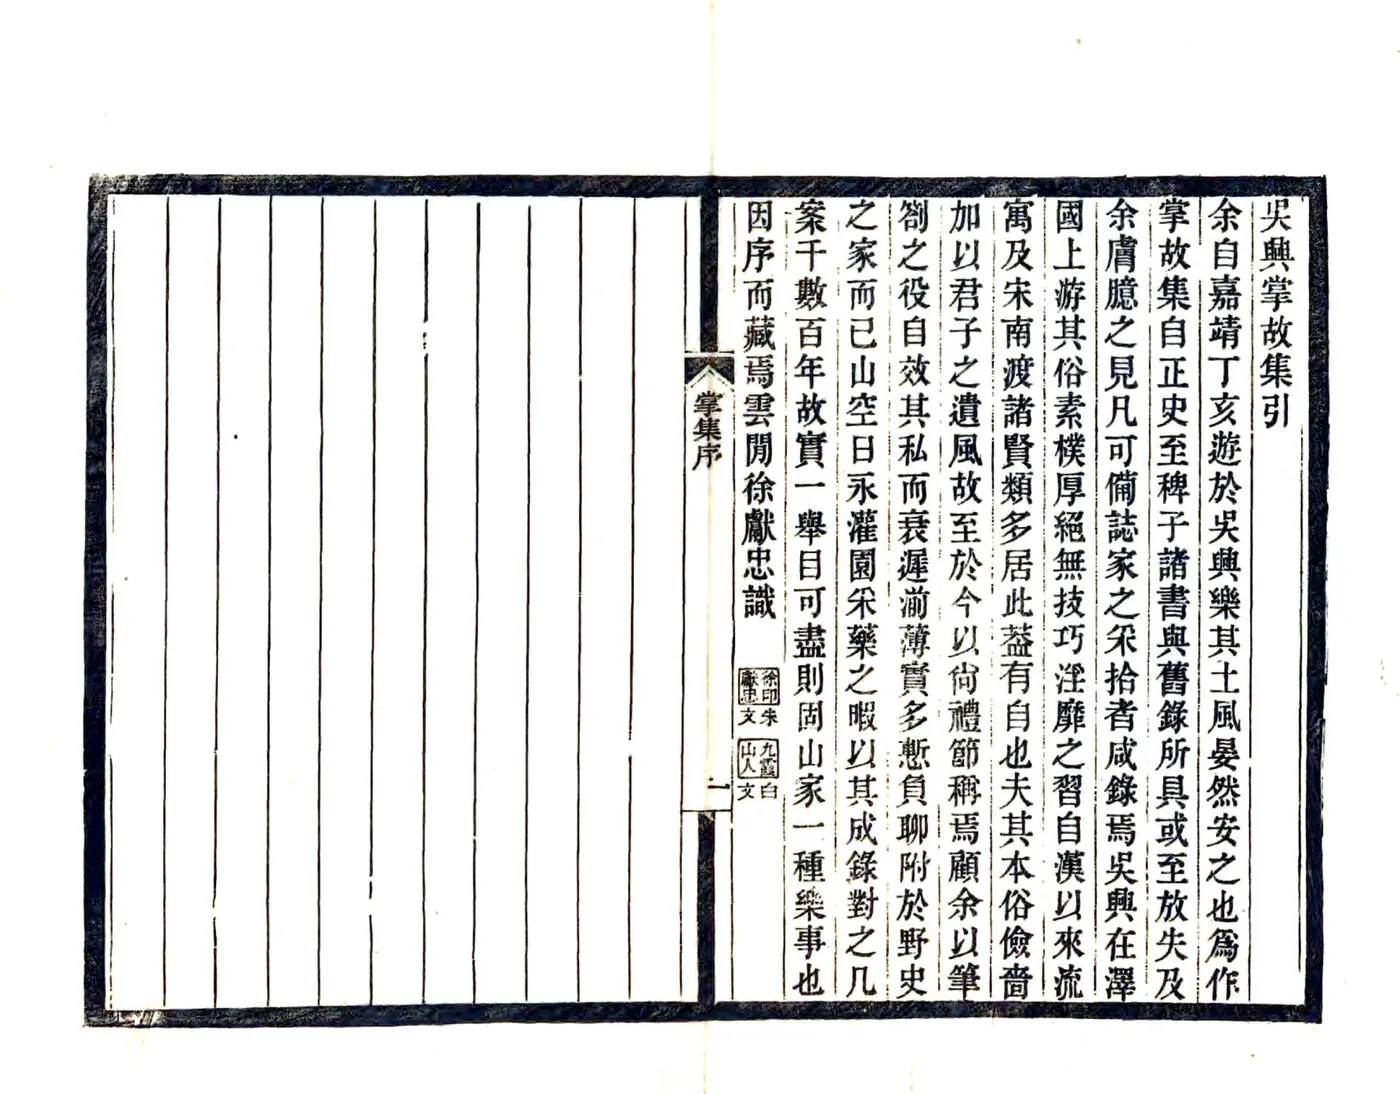 吳興掌故集引
余自嘉靖丁亥遊於吳興樂其土風晏然安之也爲作
掌故集自正史至稗子諸書與舊錄所具或至放失及
余膚臆之見凡可備誌家之采拾者咸錄焉吳興在澤
國上游其俗素樸厚絕無技巧淫靡之習自漢以來流
寓及宋南渡諸賢類多居此葢有自也夫其本俗儉嗇
加以君子之遺風故至於今以尙禮節稱焉顧余以筆
劄之役自效其私而衰遲湔薄實多慙負聊附於野史
之家而已山空日永灌園采藥之暇以其成錄對之几
案千數百年故實一舉目可盡則固山家一種樂事也
因序而藏焉雲閒徐獻忠識
徐印獻忠 朱文
九霞山人 白文
掌集序
一